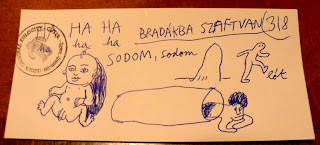 HA HA
ha ha
BRADÁKBA SZAFTVAN 3/8
SODOM, sodom
lét